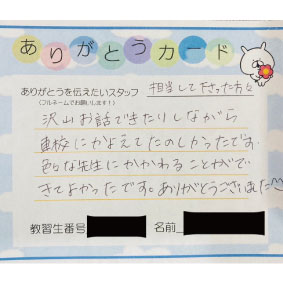 ありがとうカード
ありがとうを伝えたいスタッフ 担当して下さった方々
(フルネームでお願いします！)
沢山お話できたりしながら
車校にかよえてたのしかったです。
色々な先生にかかわることがで
きてよかったです。ありがとうございました
教習生番号 名前